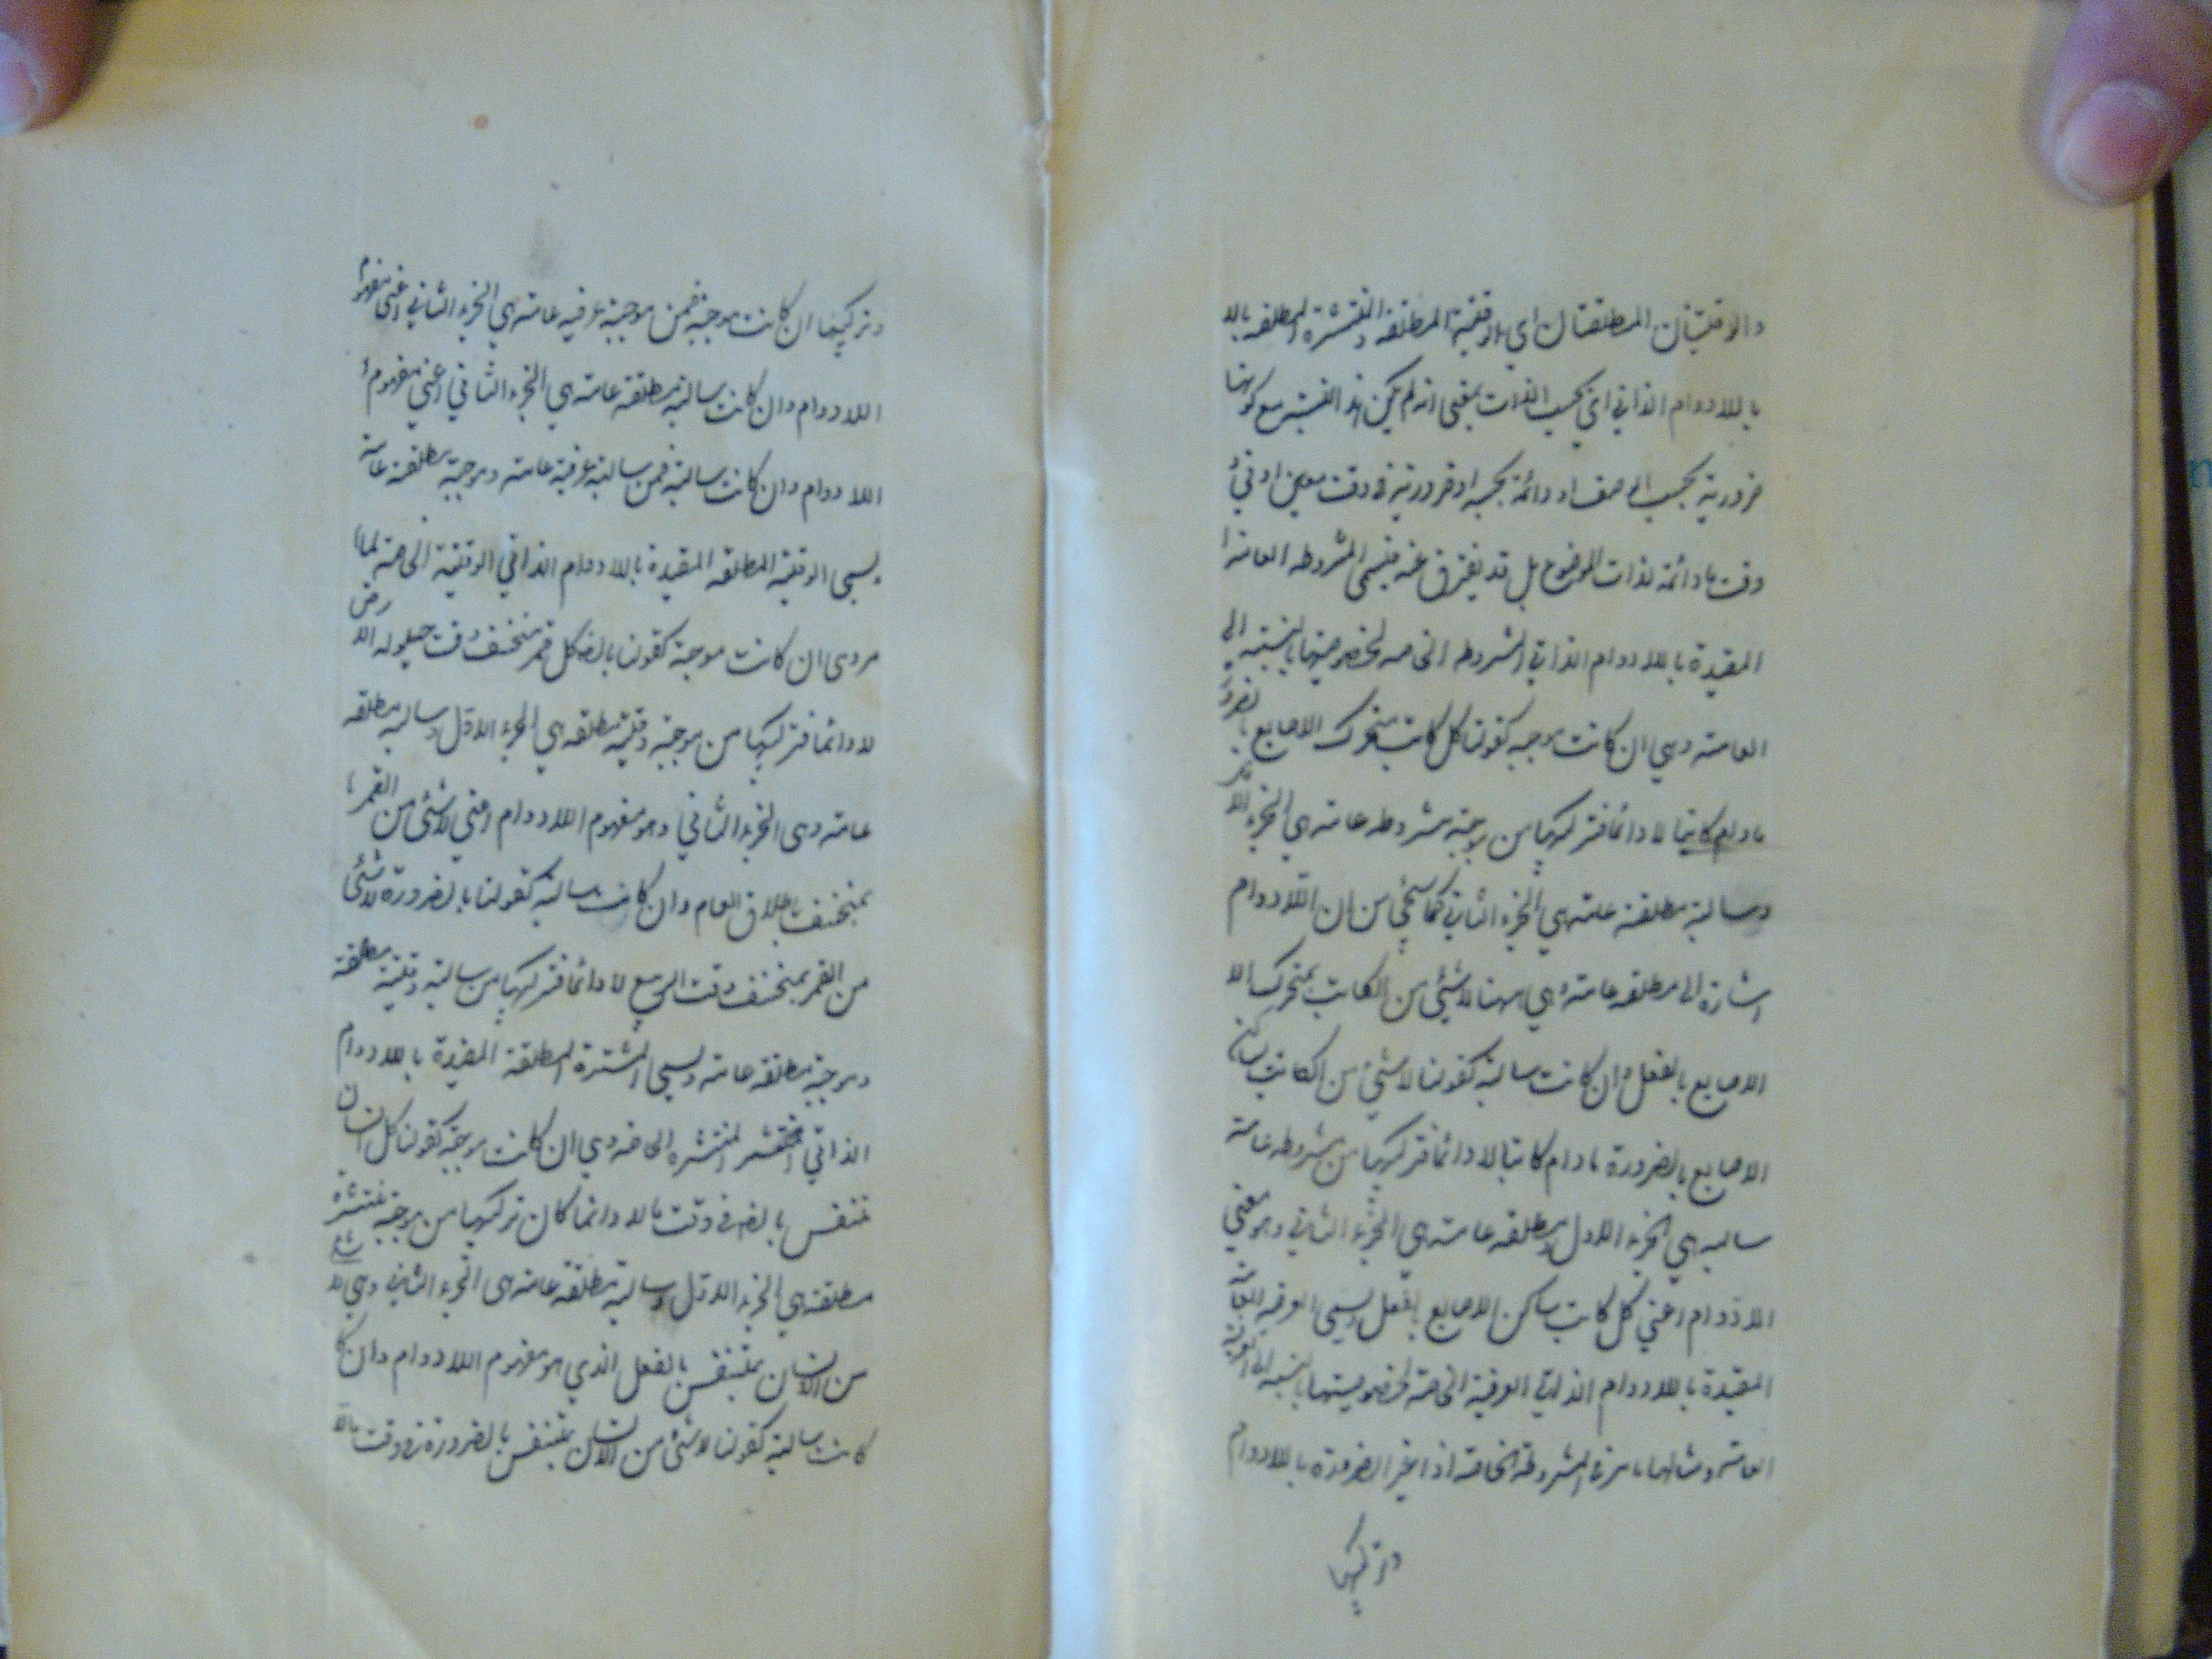 والوقتيتان المطلقتان اي الوقتية المطلقة والمنتشرة المطلقة بالا
باللادوام الذاتي اي بحسب الذات بمعنى انه لم يكن هذا مع كونها
ضرورية بحسب الوصف او دائمة بحسبه او ضرورية في وقت معين او في
وقت ما دائمة لذات الموضوع بل قد يفترق عنه فيسمى المشروطه العامة
المقيدة باللادوام الذاتي المشروطه الخاصه لخصوصيتها بالنسبة الى
العامته وهي ان كانت موجبه كقولنا كل كاتب متحرك الاصابع بالضرورة
مادام كاتبا لا دائما فتركيبها من موجبة مشروطه عامته هي الجزء الاول
وسالبة مطلقة عامته هي الجزء الثاني كما سيجئ من ان اللادوام
اشارة الى مطلقه عامته وهي ههنا لا شئي من الكاتب بمتحرك الا
الاصابع بالفعل وان كانت سالبة كقولنا لا شئي من الكاتب بساكن
الاصابع بالضرورة مادام كاتبا لا دائما فتركيبها من مشروطه عامته
سالبه هي الجزء الاول ومطلقه عامته هي الجزء الثاني وهو معنى
اللادوام اعني كل كاتب ساكن الاصابع بالفعل ويسمى العرفيه العامة
المقيدة باللادوام الذاتي العرفية الخاصة لخصوصيتها بالنسبه الى العرفية
العامته ومثالهما ما مر في المشروطة الخاصته اذا غير الضرورة باللادوام
وتركيبها
وتركيبها ان كانت موجبة فمن موجبة عرفيه عامته هي الجزء الثاني اعني مفهوم
اللادوام وان كانت سالبة مطلقة عامته هي الجزء الثاني اعني مفهوم
اللادوام وان كانت سالبة فمن سالبة عرفية عامته وموجبة مطلقة عامة
ويسمى الوقتية المطلقه المقيدة باللادوام الذاتي الوقتية الخاصة لما
مر وهي ان كانت موجبة كقولنا بالضر كل قمر منخسف وقت حيلوله الارض
لا دائما فتركيبها من موجبة وقتية مطلقه هي الجزء الاول وسالبه مطلقه
عامته وهي الجزء الثاني وهو مفهوم اللادوام اعني لا شئى من القمر
بمنخسف بالاطلاق العام وان كانت سالبة كقولنا بالضرورة لا شئى
من القمر بمنخسف وقت التربيع لا دائما فتركيبها من سالبة وقتية مطلقة
وموجبة مطلقة عامته ويسمى المنتشرة المطلقة المقيدة باللادوام
الذاتي المنتشره الخاصه وهي ان كانت موجبة كقولنا كل انسان
متنفس بالضر في وقت ما لا دائما كان تركيبها من موجبة منتشرة
مطلقة هي الجزء الاول وسالبة مطلقة عامته هي الجزء الثاني وهي لا شئ
من الانسان بمتنفس بالفعل الذي هو مفهوم اللادوام وان كا
كانت سالبة كقولنا لا شئى من الانسان بمتنفس بالضرورة في وقت ما لا